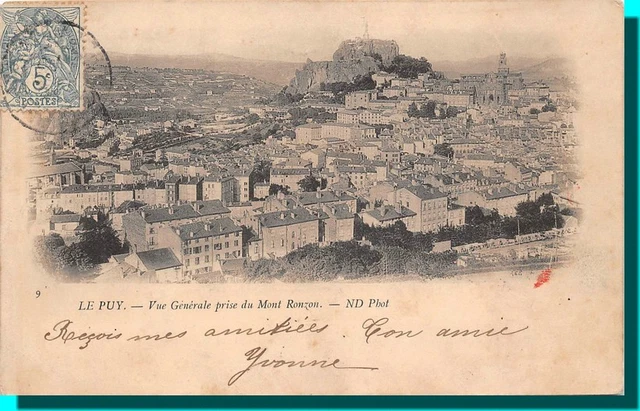 5c
POSTES
9
LE PUY. — Vue Générale prise du Mont Ronzon. — ND Phot
Reçois mes amitiées. Ton amie
Yvonne